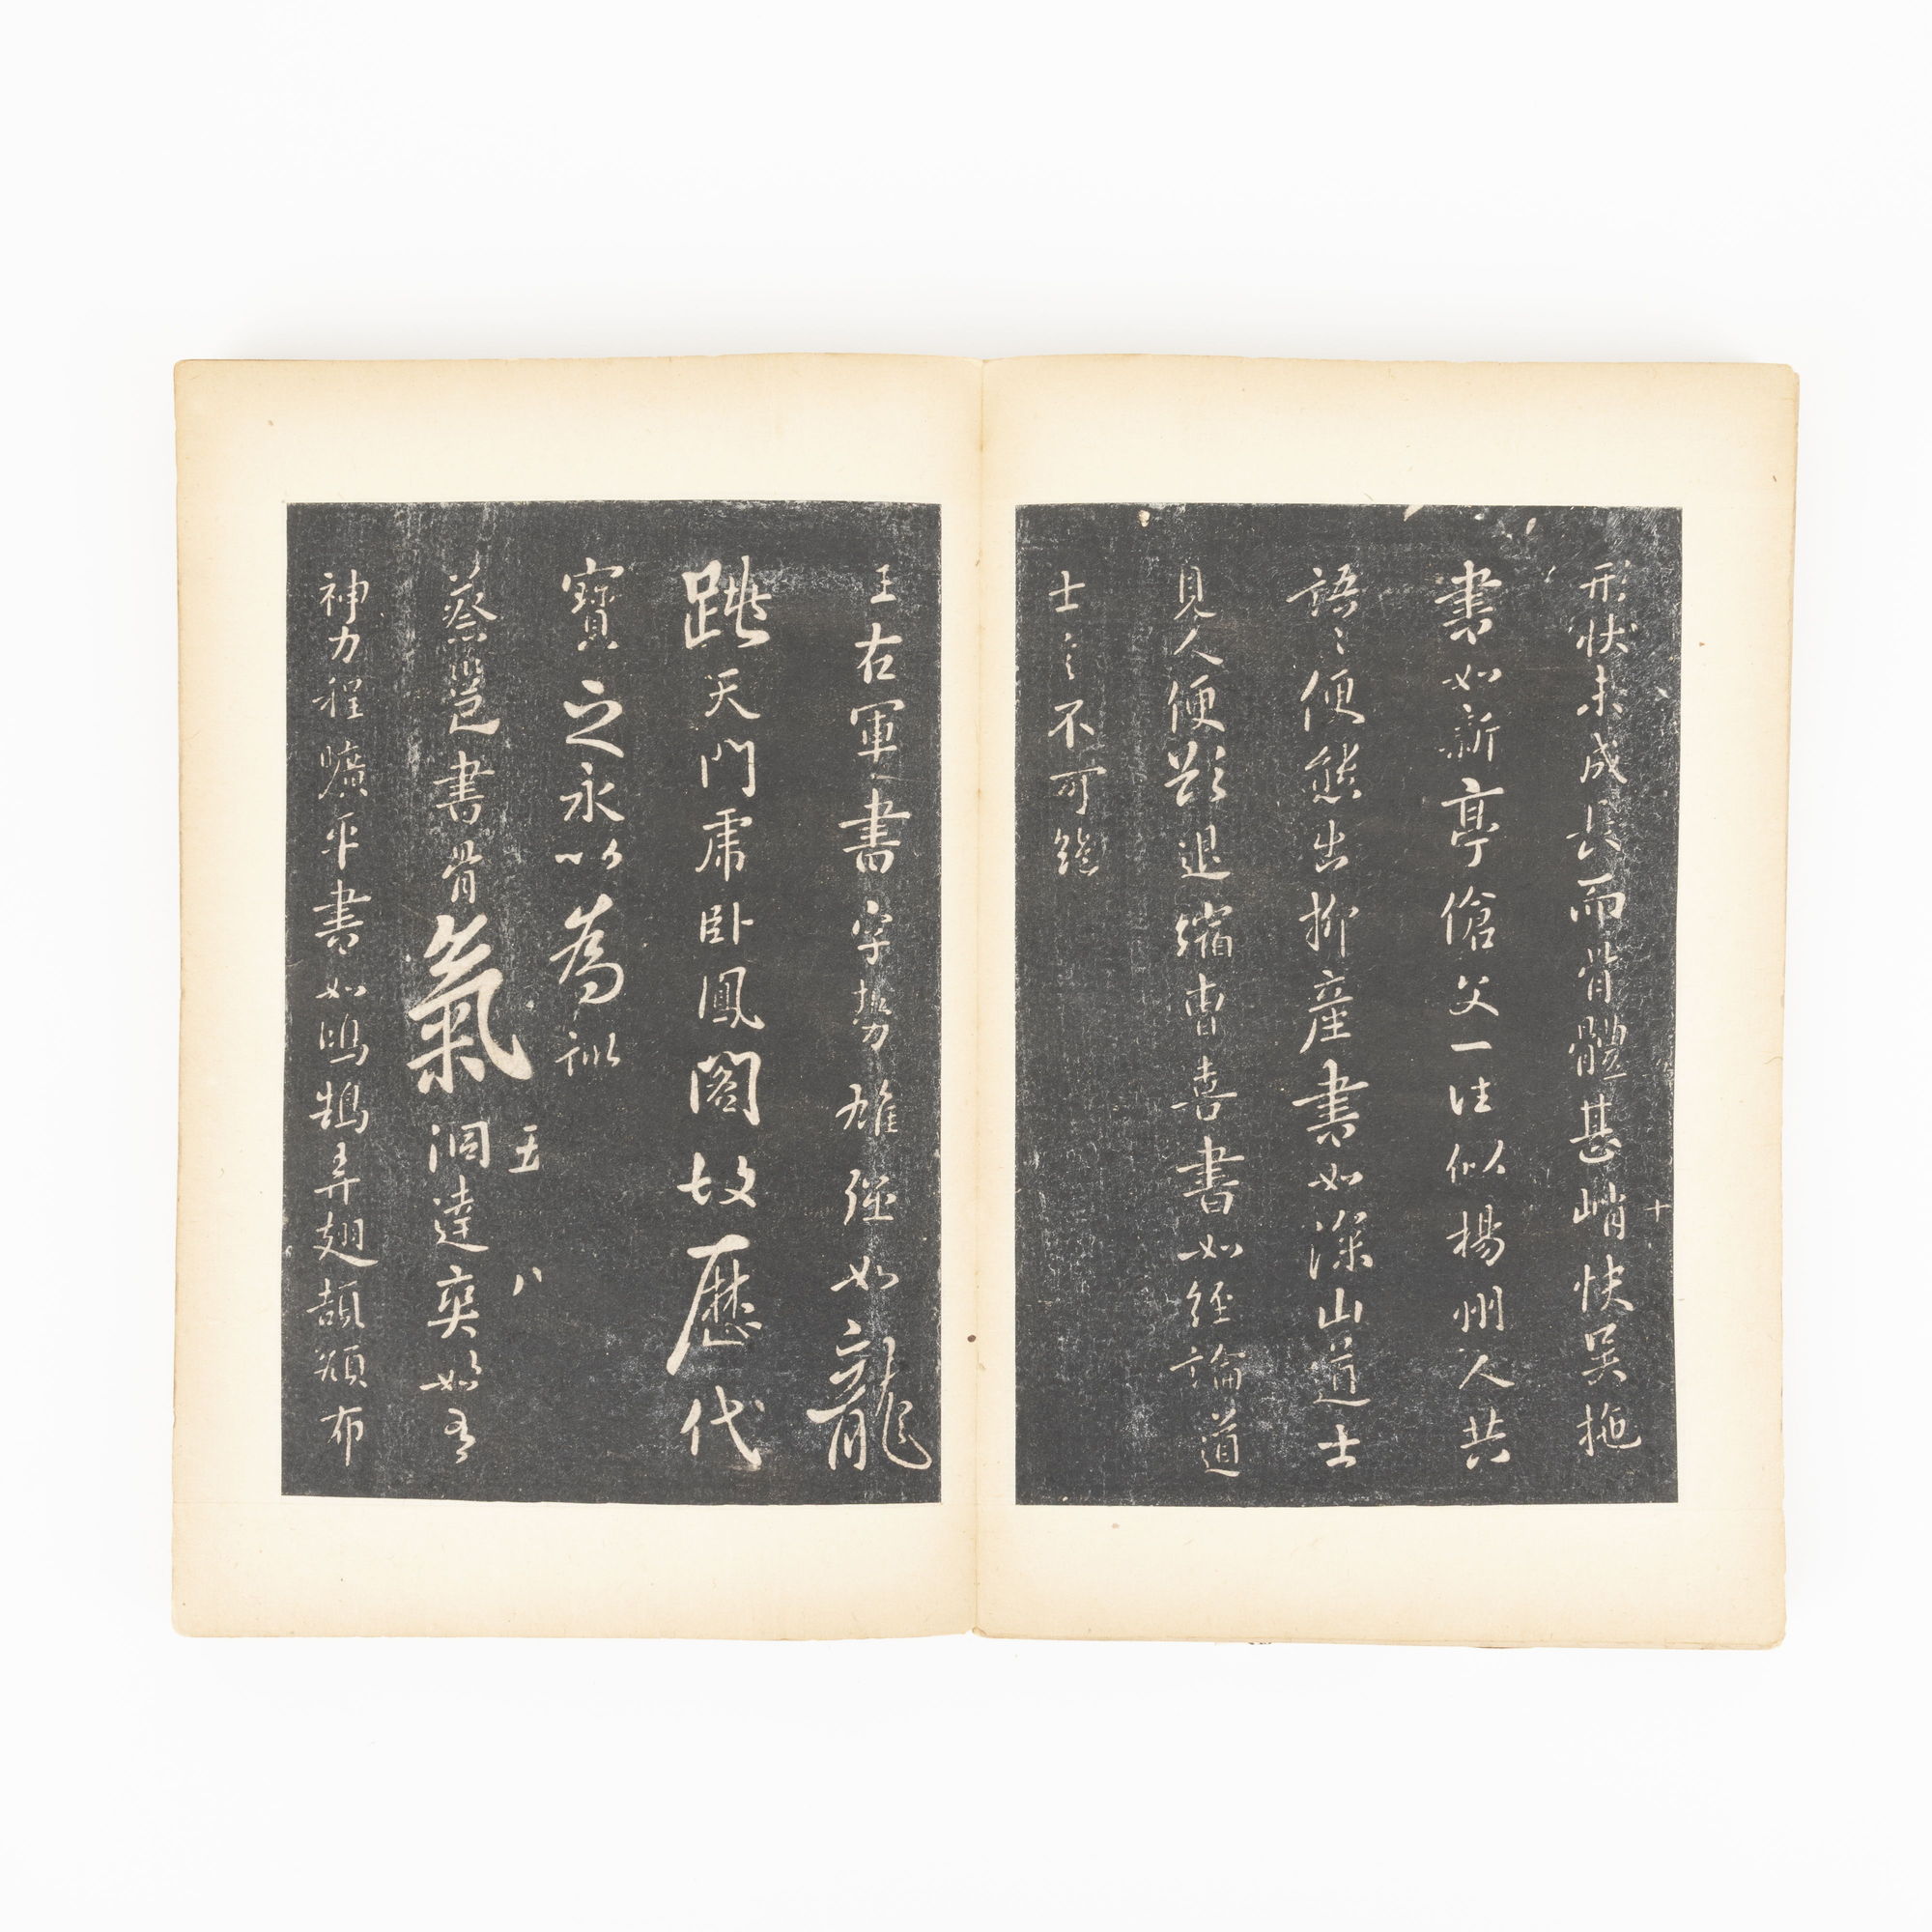 形狀未成長而骨體甚峭快吴拖
十
書如新亭傖父一往似揚州人共
語〻便態出柳產書如深山道士
見人便欲退縮曹喜書如經論道
士言不可絶
王右軍書字勢雄强如龍
跳天門虎卧鳳閣故歷代
寶之永以為訓
五八
蔡邕書骨氣洞達奕如有
神力程曠平書如鴻鵠弄翅頡頏布